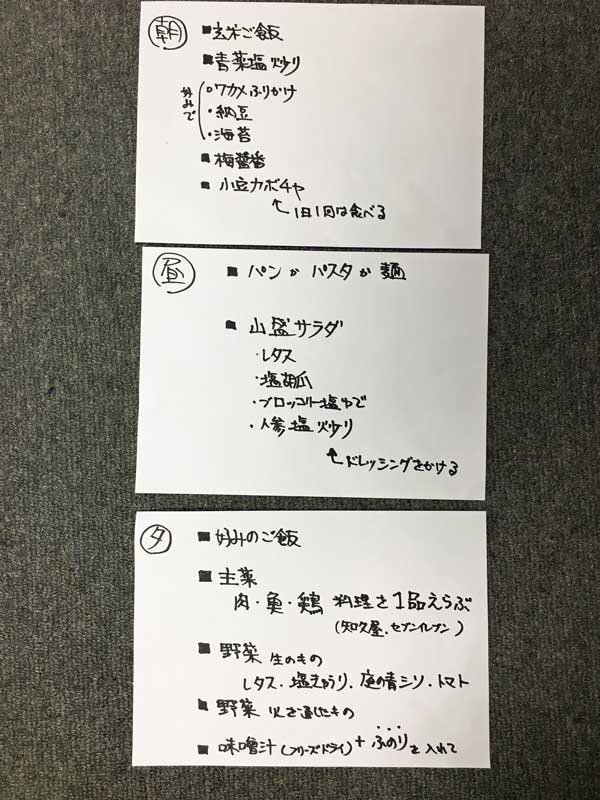 朝
■玄米ご飯
■青菜塩炒り
好みで
・ワカメふりかけ
・納豆
・海苔
■梅醤番
■小豆カボチャ
1日1回は食べる
昼
■パンか パスタか 麺
■山盛サラダ
・レタス
・塩胡瓜
・ブロッコリー塩ゆで
・人参塩炒り
ドレッシングをかける
夕
■好みのご飯
■主菜
肉・魚・鶏 料理を1品えらぶ
(知久屋、セブンイレブン)
■野菜 生のもの
レタス・塩きゅうり、庭の青シソ・トマト
■野菜 火を通したもの
■味噌汁(フリーズドライ)+ふのりを入れて